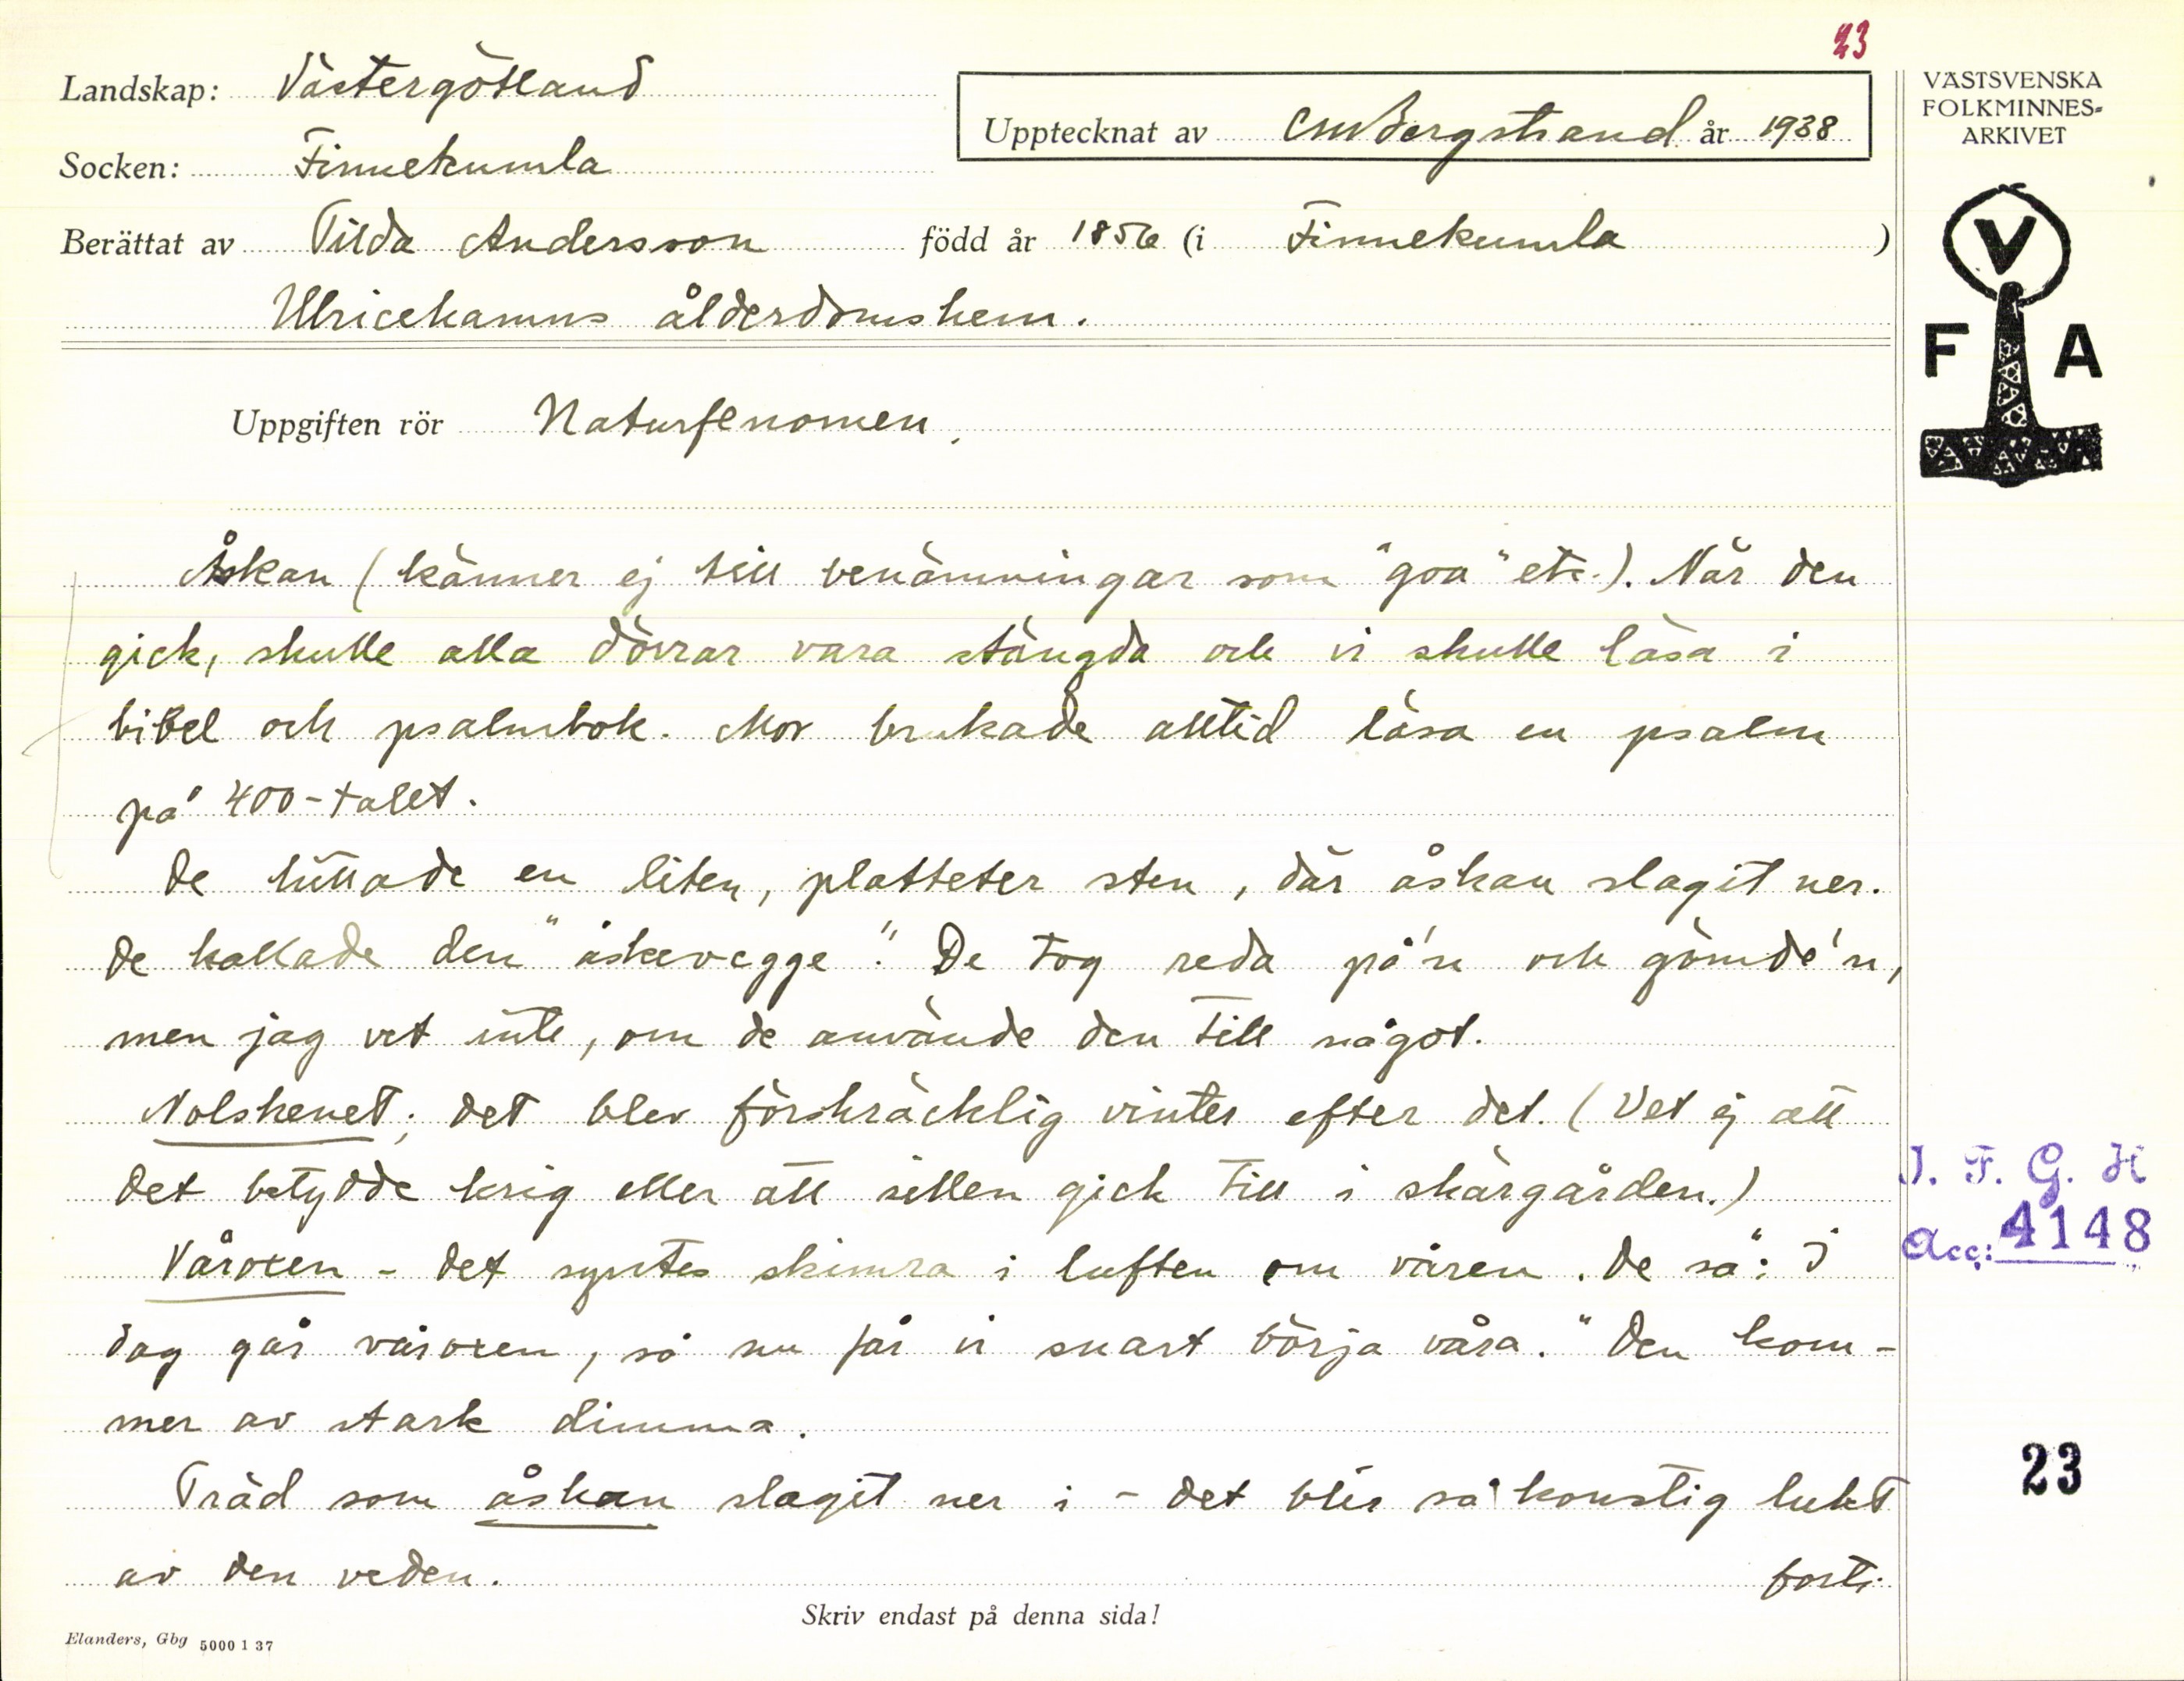 23
Landskap: Västergötland
Upptecknat av CMBergstrand år 1938
Socken: Finnekumla
Berättat av Tilda Andersson född år 1856 (i Finnekumla )
Ulricehamns ålderdomshem.
Uppgiften rör Naturfenomen.
Åskan (känner ej till benämningar som "goa" etc.). När den
gick, skulle alla dörrar vara stängda och vi skulle läsa i
bibel och psalmbok. Mor brukade alltid läsa en psalm
på 400-talet.
De hittade en liten, platteter sten, där åskan slagit ner.
De kallade den "åskevegge". De tog reda på'n och gömde'n,
men jag vet inte, om de använde den till något.
Nolskenet; det blev förskräcklig vinter efter det. (Vet ej att
det betydde krig eller att sillen gick till i skärgården.)
Våroxen - det syntes skimra i luften om våren. De sa: I
dag går våroxen, så nu får vi snart börja våra." Den kom-
mer av stark dimma.
Träd som åskan slagit ner i - det blir så konstig lukt
av den veden.
forts.
Skriv endast på denna sida!
Elanders, Gbg 5000 1 37
VÄSTSVENSKA
FOLKMINNES-
ARKIVET
V
F A
I. F. G. H
Acc: 4148
23